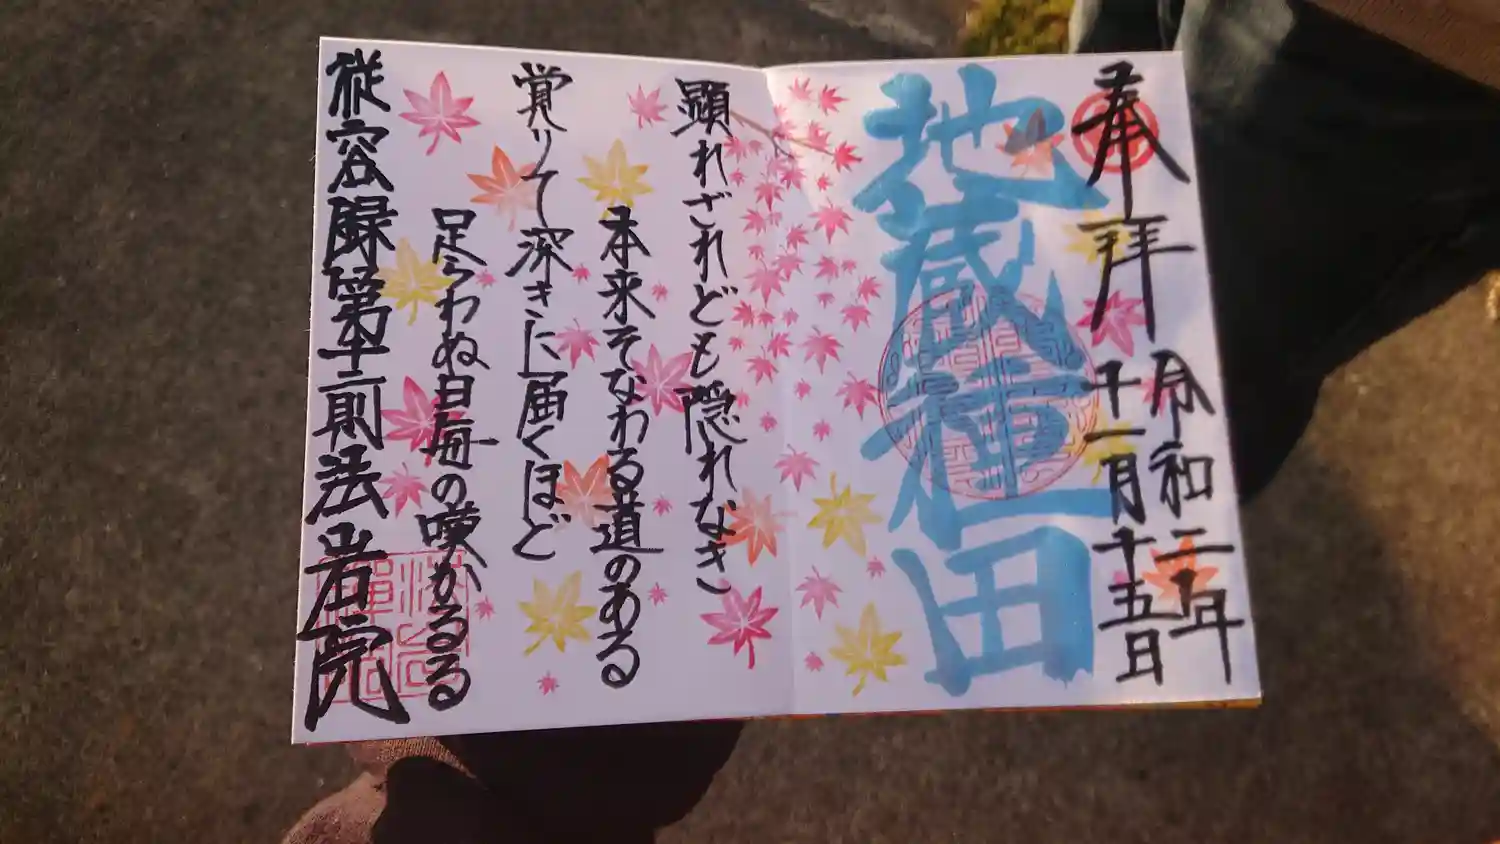 奉拝
令和二年
十一月十五日
地蔵種田
顕れざれども隠れなき
本来そなわる道のある
覚りて深きに届くほど
足らわぬ自每の嘆かるる
従容録第十二則法岩院